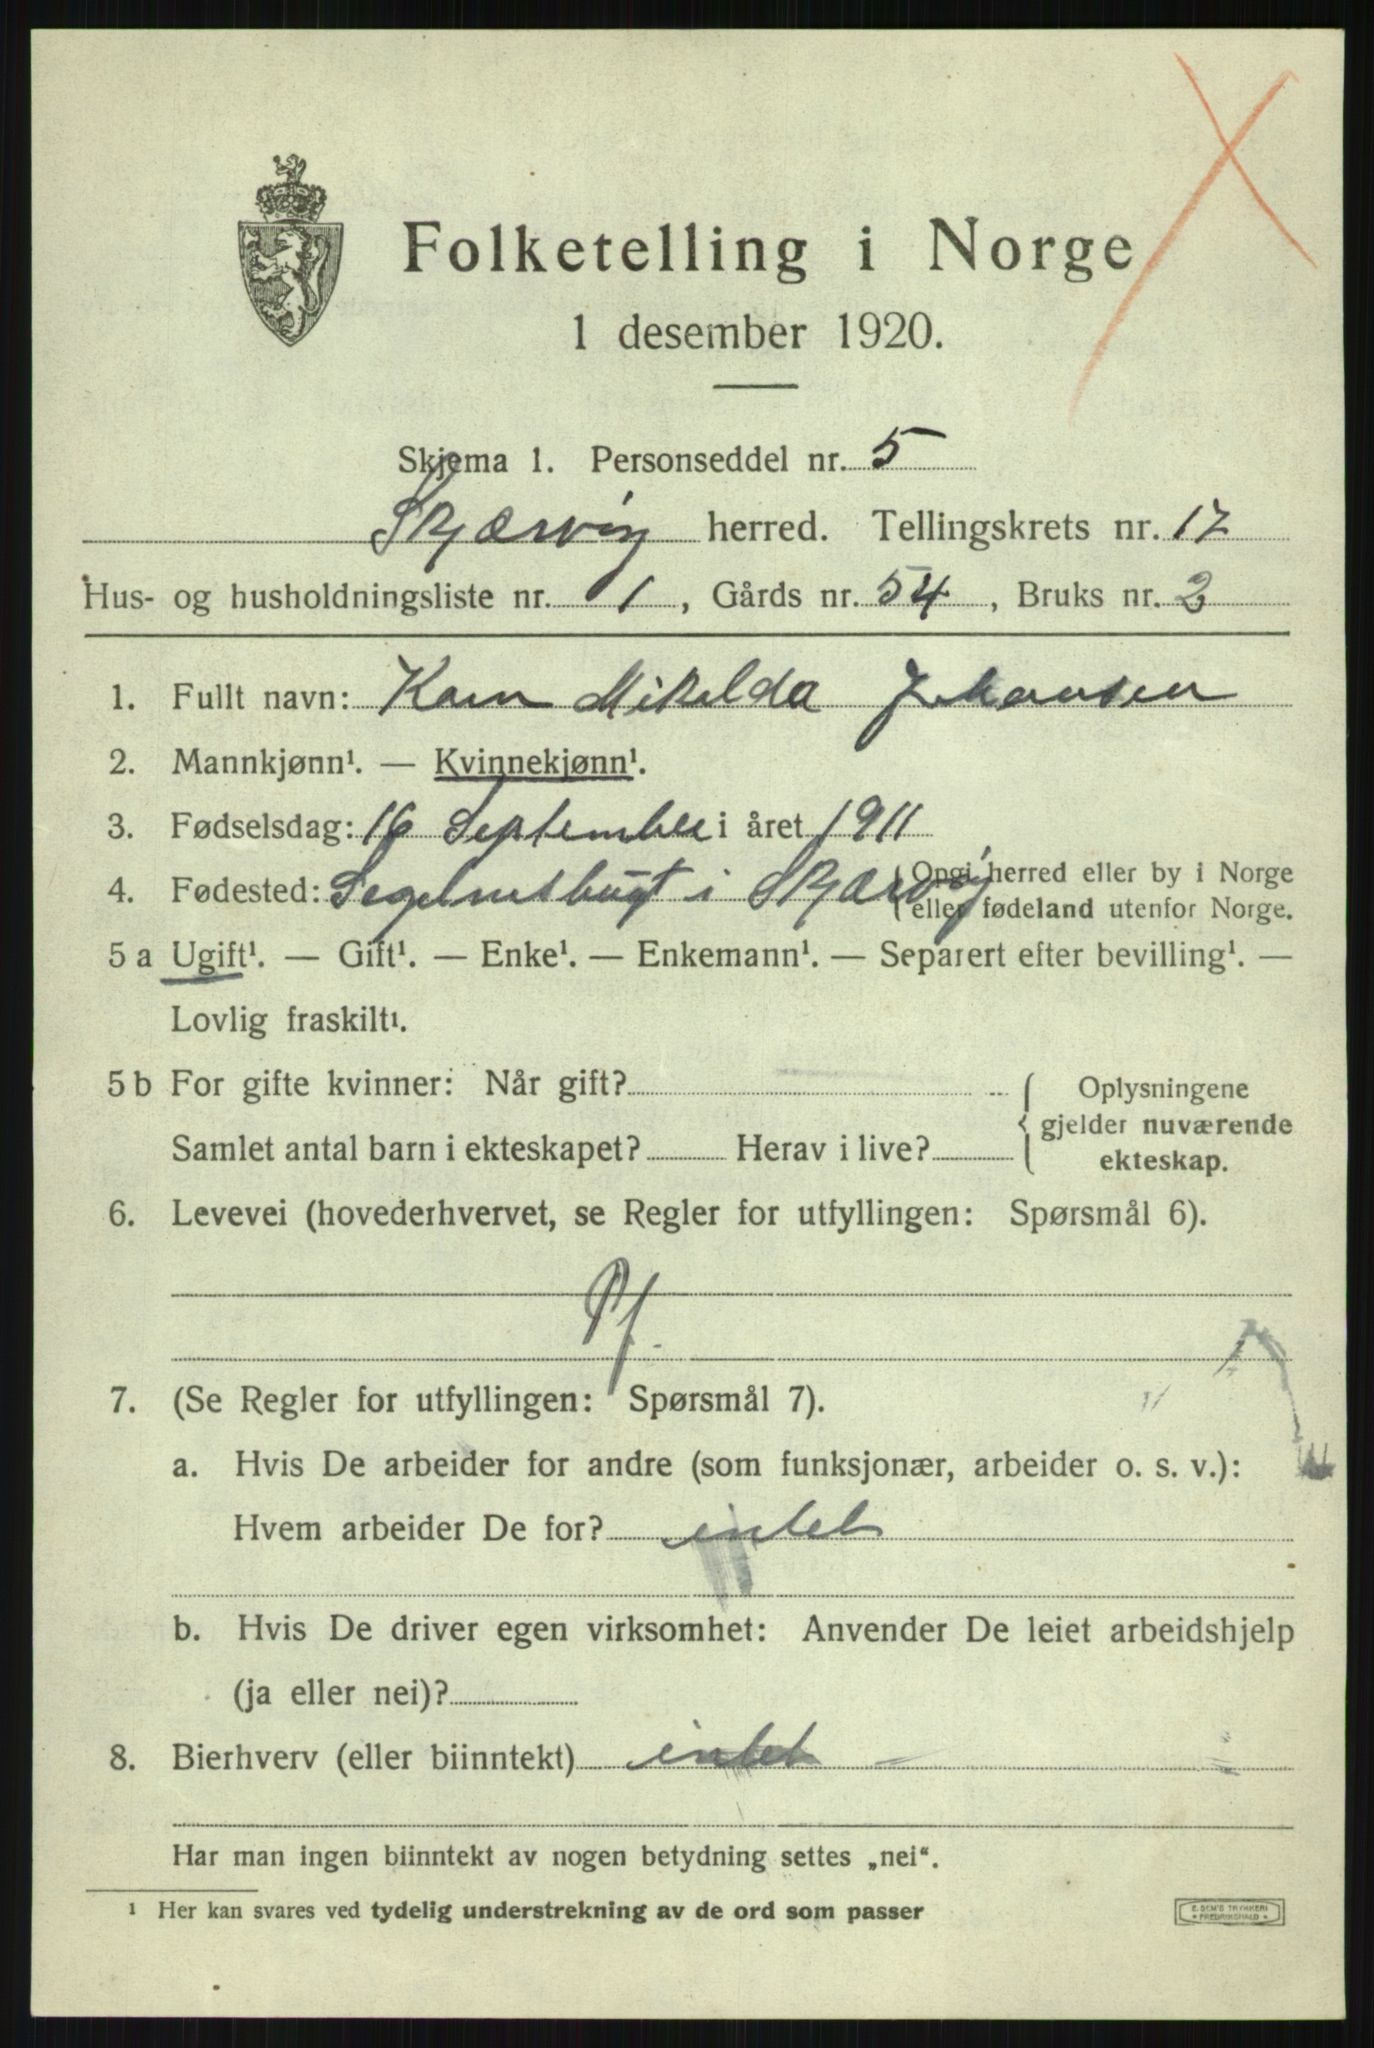 Folketelling i Norge
1 desember 1920.
Skjema 1. Personseddel nr. 5
Skjærvøy herred. Tellingskrets nr. 17
Hus- og husholdningsliste nr. 1, Gårds nr. 54, Bruks nr. 2
1. Fullt navn: Karn Mikelda Johansen
2. Mannkjønn¹. — Kvinnekjønn¹.
3. Fødselsdag: 16 September i året 1911
4. Fødested: Segelnesbugt i Skjærvøy { Opgi herred eller by i Norge
eller fødeland utenfor Norge.
5 a Ugift¹. — Gift¹. — Enke¹. — Enkemann¹. — Separert efter bevilling¹. —
Lovlig fraskilt¹.
5 b For gifte kvinner: Når gift? { Oplysningene
gjelder nuværende
Samlet antal barn i ekteskapet? Herav i live? ekteskap.
6. Levevei (hovederhvervet, se Regler for utfyllingen: Spørsmål 6).
Pf.
7. (Se Regler for utfyllingen: Spørsmål 7).
a. Hvis De arbeider for andre (som funksjonær, arbeider o. s. v.):
Hvem arbeider De for? intet
b. Hvis De driver egen virksomhet: Anvender De leiet arbeidshjelp
(ja eller nei)?
8. Bierhverv (eller biinntekt) intet
Har man ingen biinntekt av nogen betydning settes „nei“.
¹ Her kan svares ved tydelig understrekning av de ord som passer
E. SEM'S TRYKKERI
FREDRIKSHALD